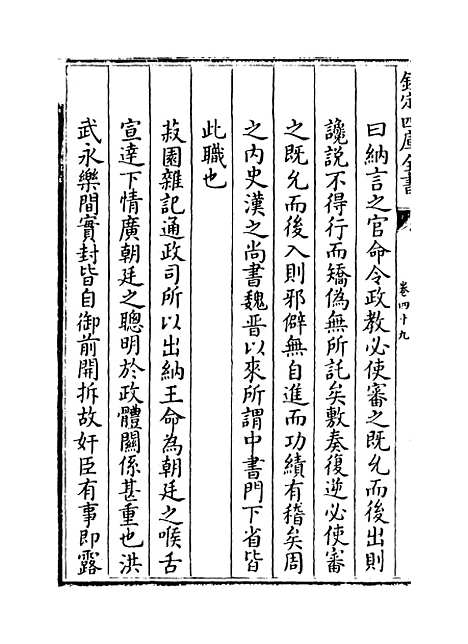 欽定四庫全書
卷四十九
曰納言之官命令政教必使審之既允而後出則
讒説不得行而矯偽無所託矣敷奏復逆必使審
之既允而後入則邪僻無自進而功績有稽矣周
之内史漢之尚書魏晉以來所謂中書門下省皆
此職也
菽園雜記通政司所以出納王命為朝廷之喉舌
宣達下情廣朝廷之聰明於政體關係甚重也洪
武永樂間實封皆自御前開拆故奸臣有事即露